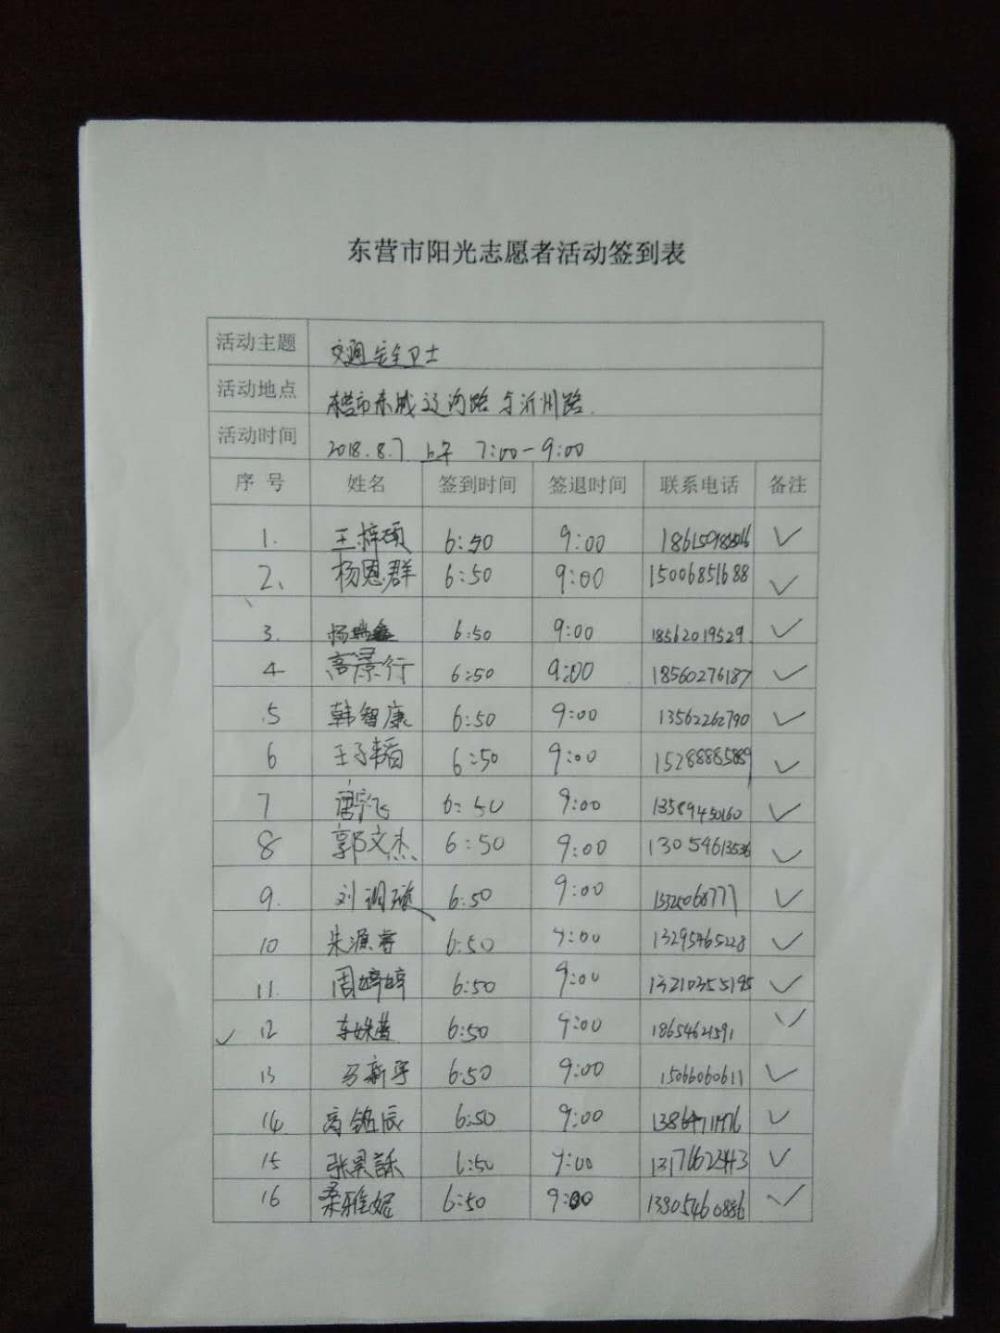 东营市阳光志愿者活动签到表
活动主题 交通安全卫士
活动地点 东营市东城辽河路与沂州路.
活动时间 2018.8.7 上午 7:00-9:00
序号 姓名 签到时间 签退时间 联系电话 备注
1. 王梓硕 6:50 9:00 ✓
2、 杨恩群 6:50 9:00 15006851688 ✓
3. 杨 6:50 9:00 18562019529 ✓
4 高景行 6:50 9:00 18560276187 ✓
5 韩智康 6:50 9:00 13562262790 ✓
6 王子韬 6:50 9:00 15288885889 ✓
7 唐宇飞 6:50 9:00 13589450160 ✓
8 郭文杰 6:50 9:00 13054613536 ✓
9. 刘 6:50 9:00 ✓
10 朱源 6:50 9:00 13295465228 ✓
11. 周婷婷 6:50 9:00 13210355195 ✓
✓ 12 车姝 6:50 9:00 ✓
13 马新宇 6:50 9:00 ✓
14 高铭辰 6:50 9:00 ✓
15 张 6:50 9:00 ✓
16 桑雅妮 6:50 9:00 13305460886 ✓